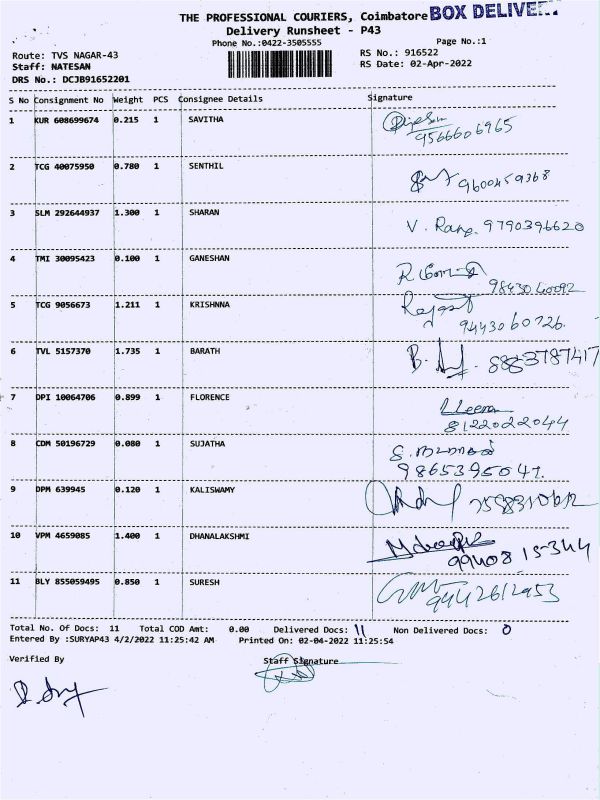 THE PROFESSIONAL COURIERS, Coimbatore BOX DELIVERY
Delivery Runsheet - P43
Phone No.:0422-3505555 Page No.:1
Route: TVS NAGAR-43 RS No.: 916522
Staff: NATESAN RS Date: 02-Apr-2022
DRS No.: DCJB91652201
S No Consignment No Weight PCS Consignee Details Signature
1 KUR 608699674 0.215 1 SAVITHA
9566606965
2 TCG 40075950 0.780 1 SENTHIL 9600459368
3 SLM 292644937 1.300 1 SHARAN V. Rang. 9790396620
4 TMI 30095423 0.100 1 GANESHAN
9843060092
5 TCG 9056673 1.211 1 KRISHNNA
9443060726.
6 TVL 5157370 1.735 1 BARATH 8883787417
7 DPI 10064706 0.899 1 FLORENCE
8122022044
8 CDM 50196729 0.080 1 SUJATHA
9865395047.
9 DPM 639945 0.120 1 KALISWAMY
10 VPM 4659085 1.400 1 DHANALAKSHMI
99408 15344
11 BLY 855059495 0.850 1 SURESH
9442612953
Total No. Of Docs: 11 Total COD Amt: 0.00 Delivered Docs: 11 Non Delivered Docs: 0
Entered By :SURYAP43 4/2/2022 11:25:42 AM Printed On: 02-04-2022 11:25:54
Verified By Staff Signature